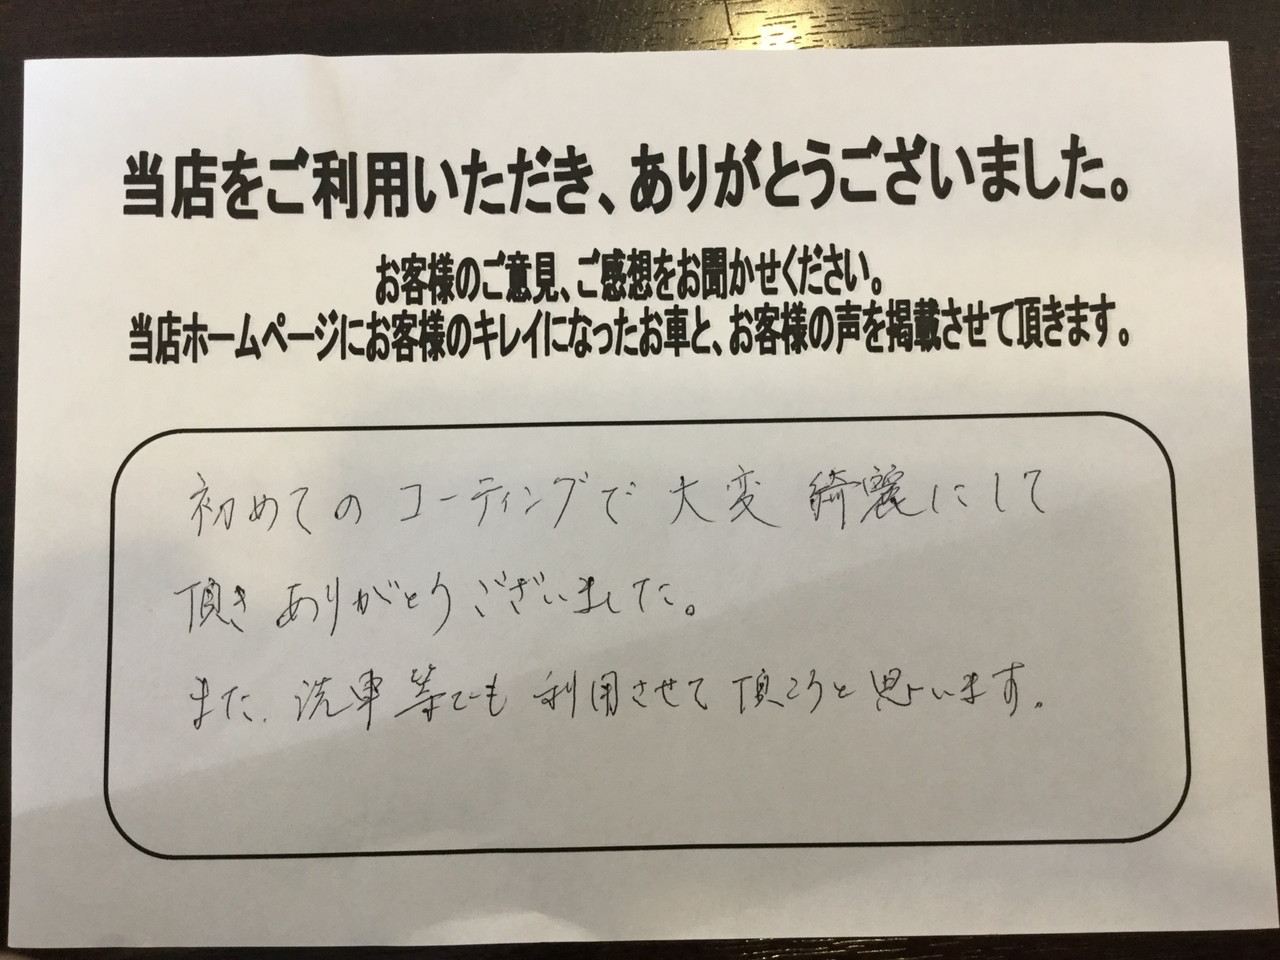 当店をご利用いただき、ありがとうございました。
お客様のご意見、ご感想をお聞かせください。
当店ホームページにお客様のキレイになったお車と、お客様の声を掲載させて頂きます。
初めてのコーティングで大変綺麗にして
頂きありがとうございました。
また、洗車等でも利用させて頂こうと思います。